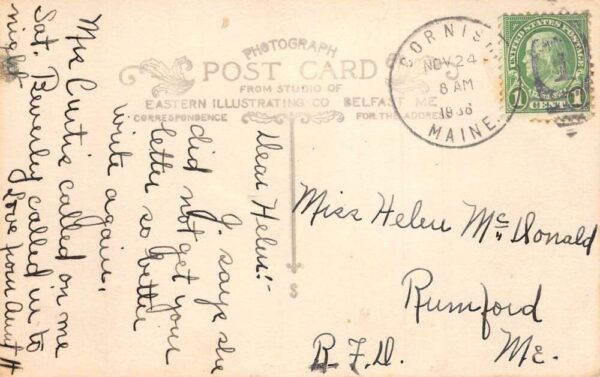 PHOTOGRAPH
POST CARD
FROM STUDIO OF
EASTERN ILLUSTRATING CO BELFAST ME
CORRESPONDENCE
FOR THE ADDRESS
CORNISH
NOV 24
8 AM
MAINE
UNITED STATES POSTAGE
1 CENT 1
Dear Helen:-
J. says she
did not get your
letter so better
write again.
Mrs Curtis called on me
Sat. Beverly called in to
night
Love from Aunt H
Miss Helen McDonald
Rumford
R.F.D. Me.
$